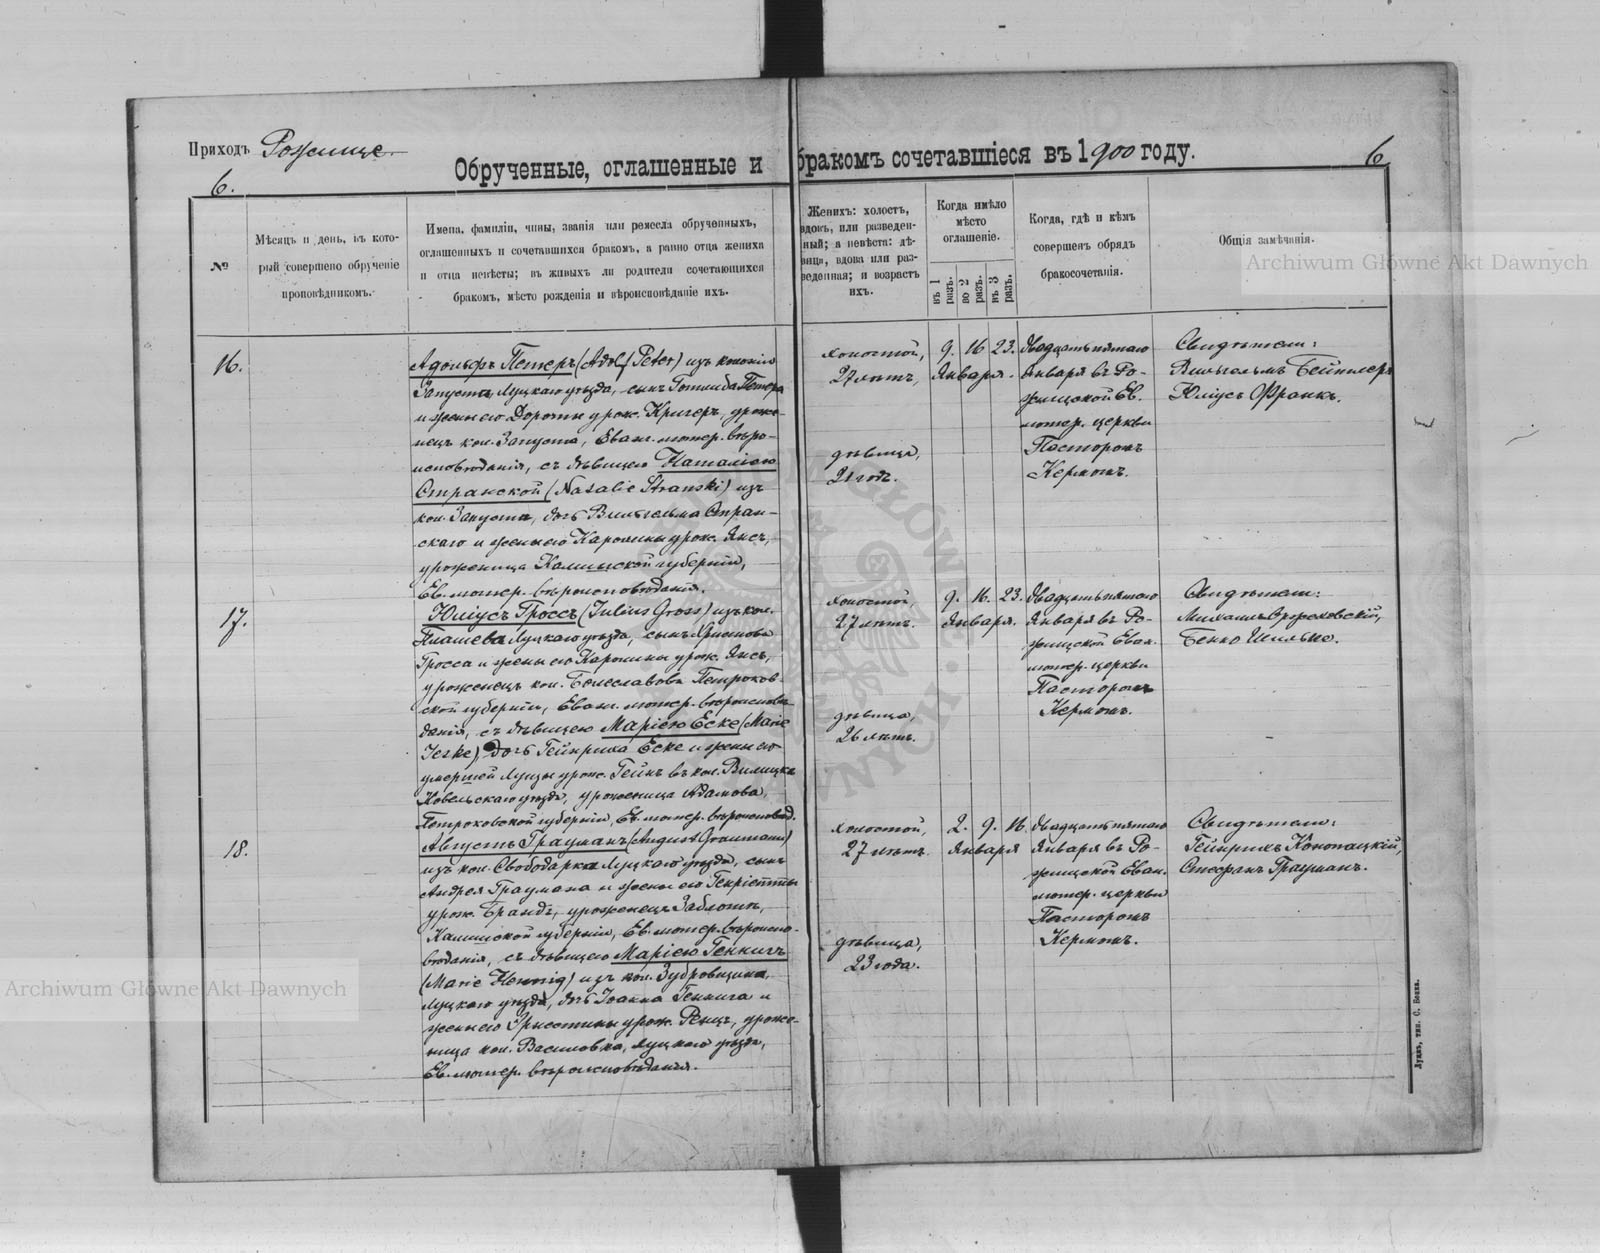 Приходъ Рожище
Обрученные, оглашенные и бракомъ сочетавшіеся въ 1900 году.
6.
6
№
Мѣсяцъ и день, въ кото-
рый совершено обрученіе
проповѣдникомъ.
Имена, фамиліи, чины, званія или ремесла обрученныхъ,
оглашенныхъ и сочетавшихся бракомъ, а равно отца жениха
и отца невѣсты; въ живыхъ ли родители сочетающихся
бракомъ, мѣсто рожденія и вѣроисповѣданіе ихъ.
Женихъ: холостъ,
вдовъ, или разведен-
ный; а невѣста: дѣ-
вица, вдова или раз-
веденная; и возрастъ
ихъ.
Когда имѣло
мѣсто
оглашеніе.
въ 1 разъ.
во 2 разъ.
въ 3 разъ.
Когда, гдѣ и кѣмъ
совершенъ обрядъ
бракосочетанія.
Общія замѣчанія.
Archiwum Główne Akt Dawnych
16.
Адольфъ Петеръ (Adolf Peter) изъ колоніи
Запуста, Луцкаго уѣзда, сынъ Готлиба Петера
и жены его Доротеи урож. Кригеръ, уроже-
нецъ кол. Запуста, Еванг. лютер. вѣро-
исповѣданія, съ дѣвицею Наталіею
Странской (Natalie Stranski) изъ
кол. Запуста, дочь Вильгельма Стран-
скаго и жены его Каролины урож. Янсъ,
уроженица Калишской губерніи,
Ев. лютер. вѣроисповѣданія.
холостой,
27 лѣтъ,
дѣвица,
21 годъ.
9. 16 23.
Января.
Двадцать пятаго
Января въ Ро-
жищской Ев.
лютер. церкви
Пасторомъ
Кермомъ.
Свидѣтели:
Вильгельмъ Бейтлеръ
Юліусъ Франкъ.
17.
Юліусъ Гроссъ (Julius Gross) изъ кол.
Топашева Луцкаго уѣзда, сынъ Христіана
Гросса и жены его Каролины урож. Янсъ,
уроженецъ кол. Болеславовъ Петроков-
ской губерніи, Еванг. лютер. вѣроисповѣ-
данія, съ дѣвицею Маріею Еске (Marie
Jeske), дочь Гейнриха Еске и жены его
умершей Луизы урож. Гейнъ въ кол.
Ковельскаго уѣзда, уроженица Адамова,
Петроковской губерніи, Ев. лютер. вѣроисповѣд.
холостой,
27 лѣтъ.
дѣвица,
26 лѣтъ.
9. 16. 23.
Января.
Двадцать пятаго
Января въ Ро-
жищской Еван.
лютер. церкви
Пасторомъ
Кермомъ.
Свидѣтели:
Михаилъ
Бенно
18.
Августъ Грауманъ (August Graumann)
изъ кол. Свободарка Луцкаго уѣзда, сынъ
Андрея Граумана и жены его Генріетты
урож. Брандъ, уроженецъ Заблота,
Калишской губерніи, Ев. лютер. вѣроиспо-
вѣданія, съ дѣвицею Маріею Геннигъ
(Marie Hennig) изъ кол. Зубровщина,
Луцкаго уѣзда, дочь Іоанна Геннига и
жены его Христины урож. Ренцъ, уроже-
ница кол. Василовка, Луцкаго уѣзда,
Ев. лютер. вѣроисповѣданія.
холостой,
27 лѣтъ.
дѣвица,
23 года.
2. 9. 16.
Января
Двадцать пятаго
Января въ Ро-
жищской Еван.
лютер. церкви
Пасторомъ
Кермомъ.
Свидѣтели:
Гейнрихъ Конопацкій,
Стефанъ Грауманъ.
Archiwum Główne Akt Dawnych
Луцкъ, тип. С. Бокка.